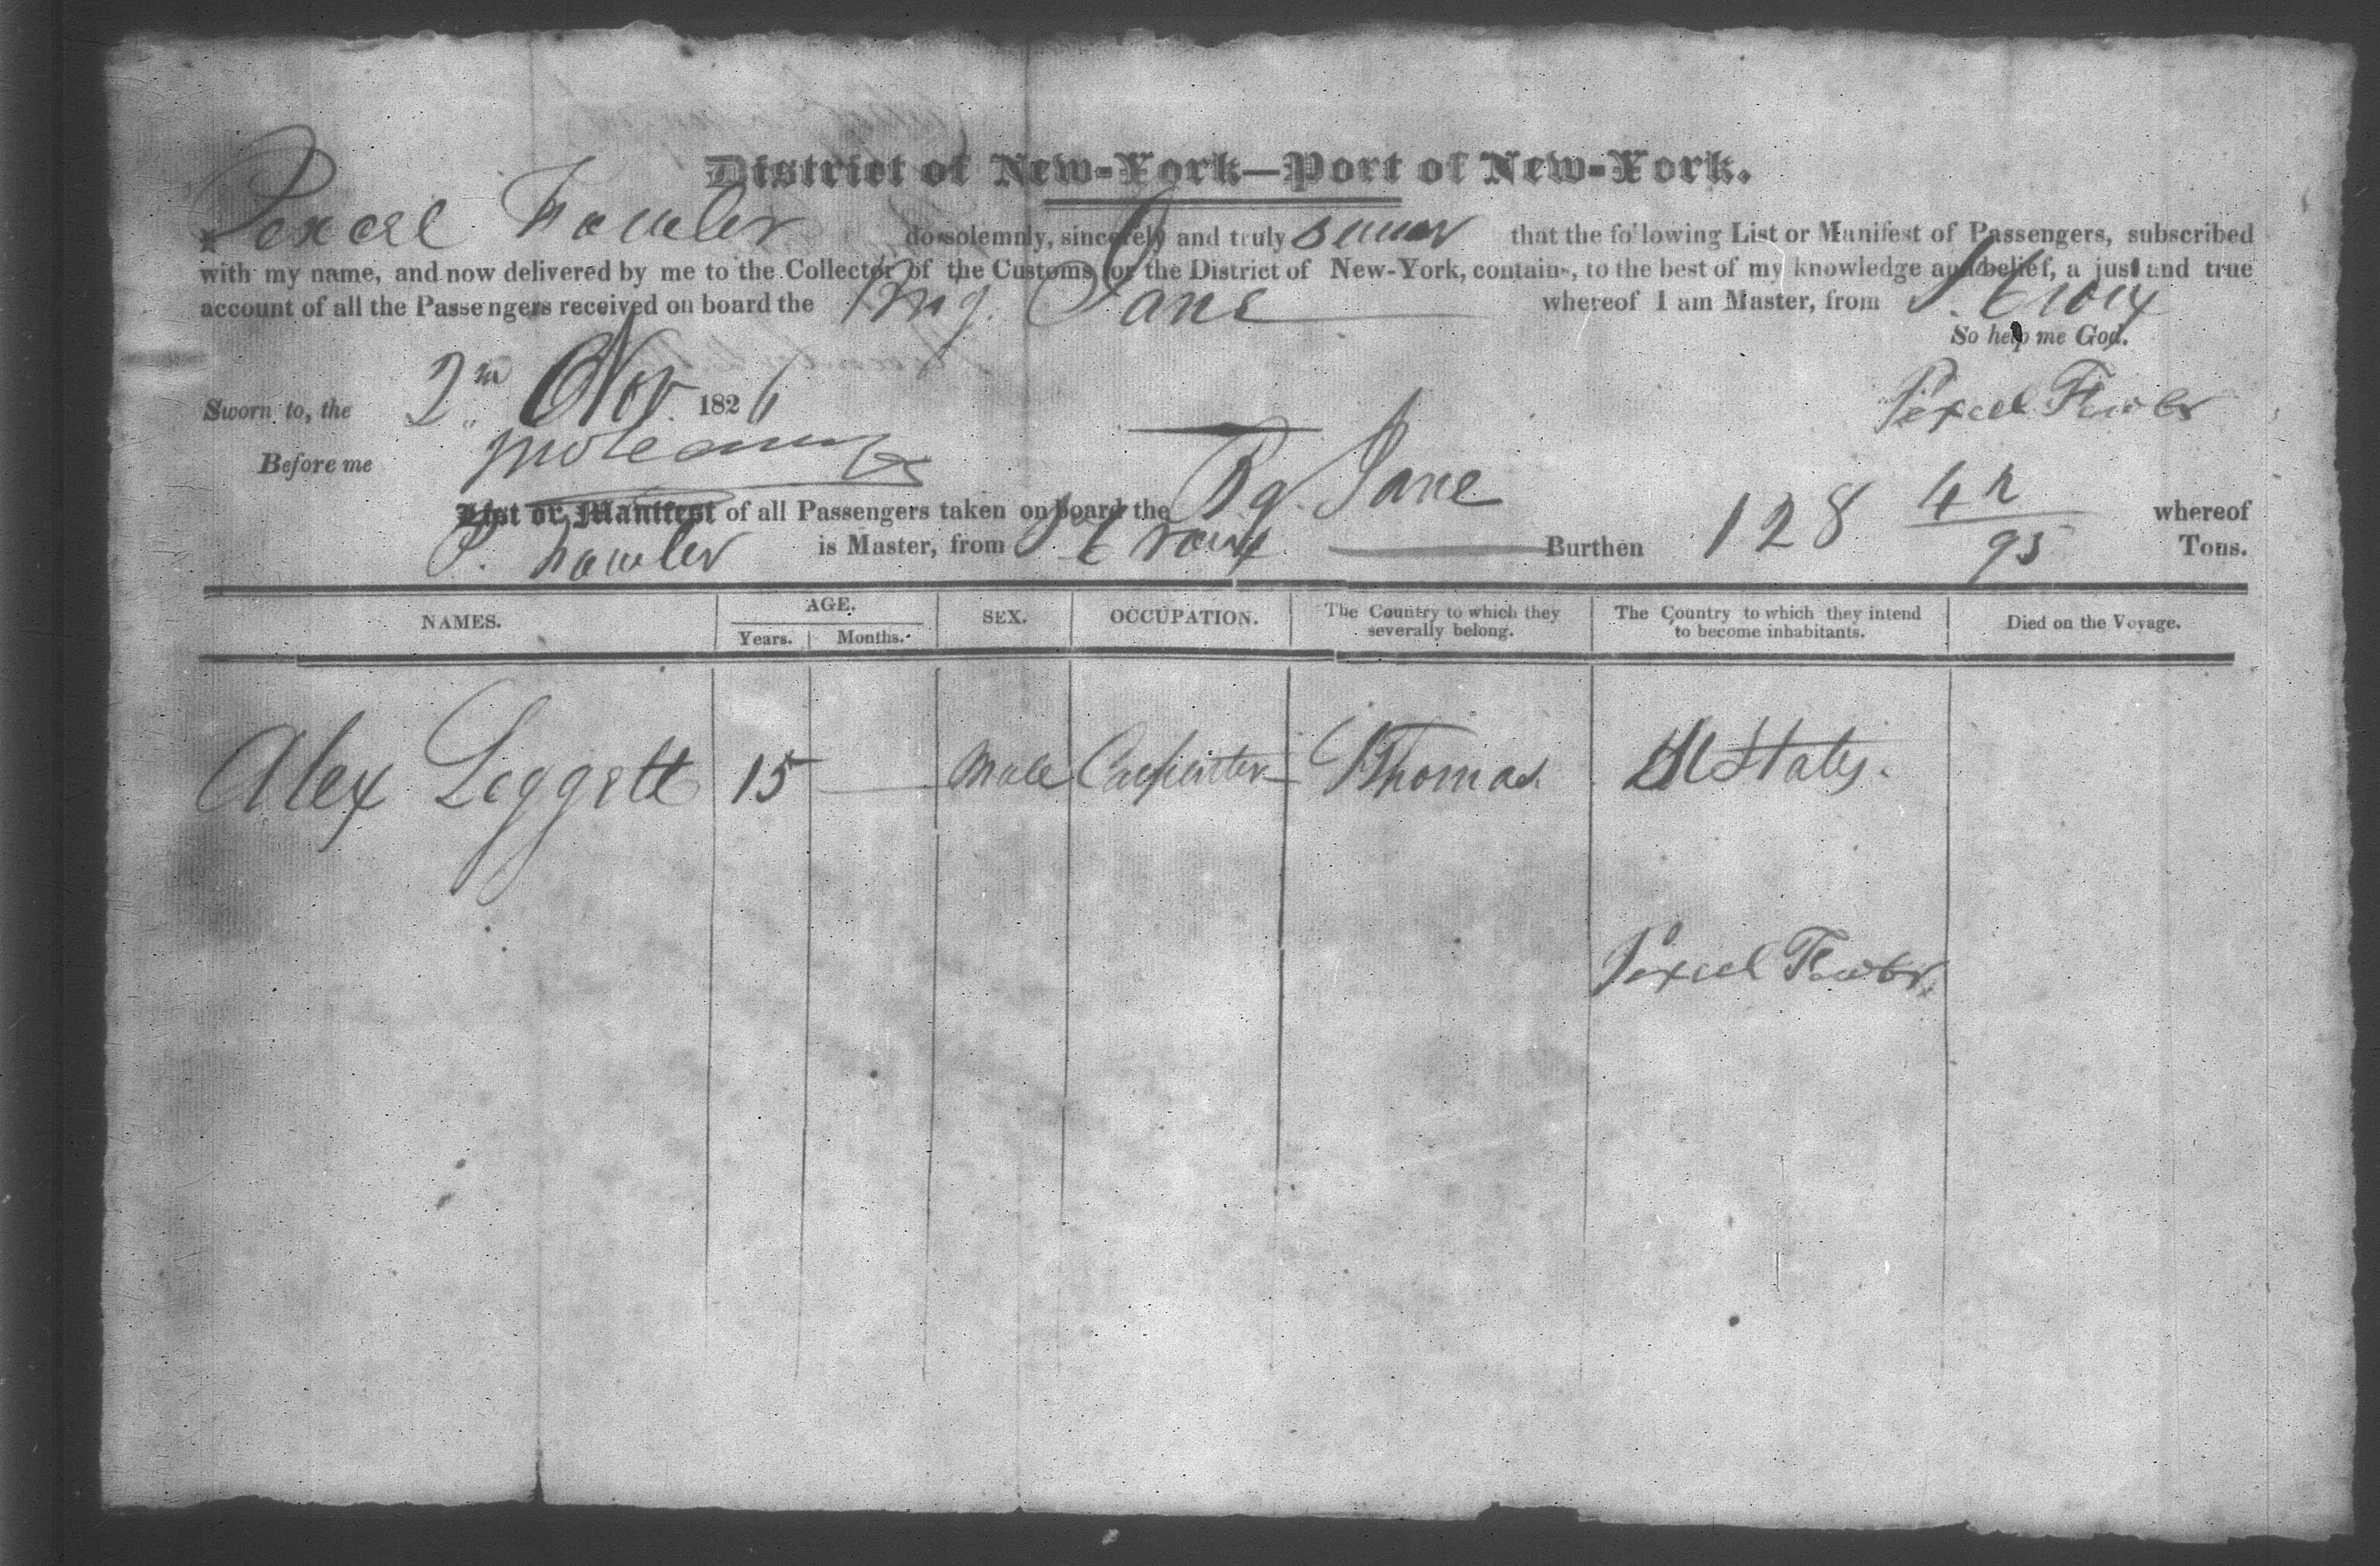 District of New-York—Port of New-York.
I Pexcel Fowler do solemnly, sincerely and truly swear that the following List or Manifest of Passengers, subscribed
with my name, and now delivered by me to the Collector of the Customs for the District of New-York, contains, to the best of my knowledge and belief, a just and true
account of all the Passengers received on board the Brig. Jane whereof I am Master, from St. Croix
So help me God.
Sworn to, the 2nd Nov 1826
Pexcel Fowler
Before me
List or Manifest of all Passengers taken on board the Bg. Jane whereof
P. Fowler is Master, from St Croix Burthen 128 42/95 Tons.
NAMES. AGE. Years. Months. SEX. OCCUPATION. The Country to which they severally belong. The Country to which they intend to become inhabitants. Died on the Voyage.
Alex Leggett 15 — Male Carpenter St Thomas U States.
Pexcel Fowler